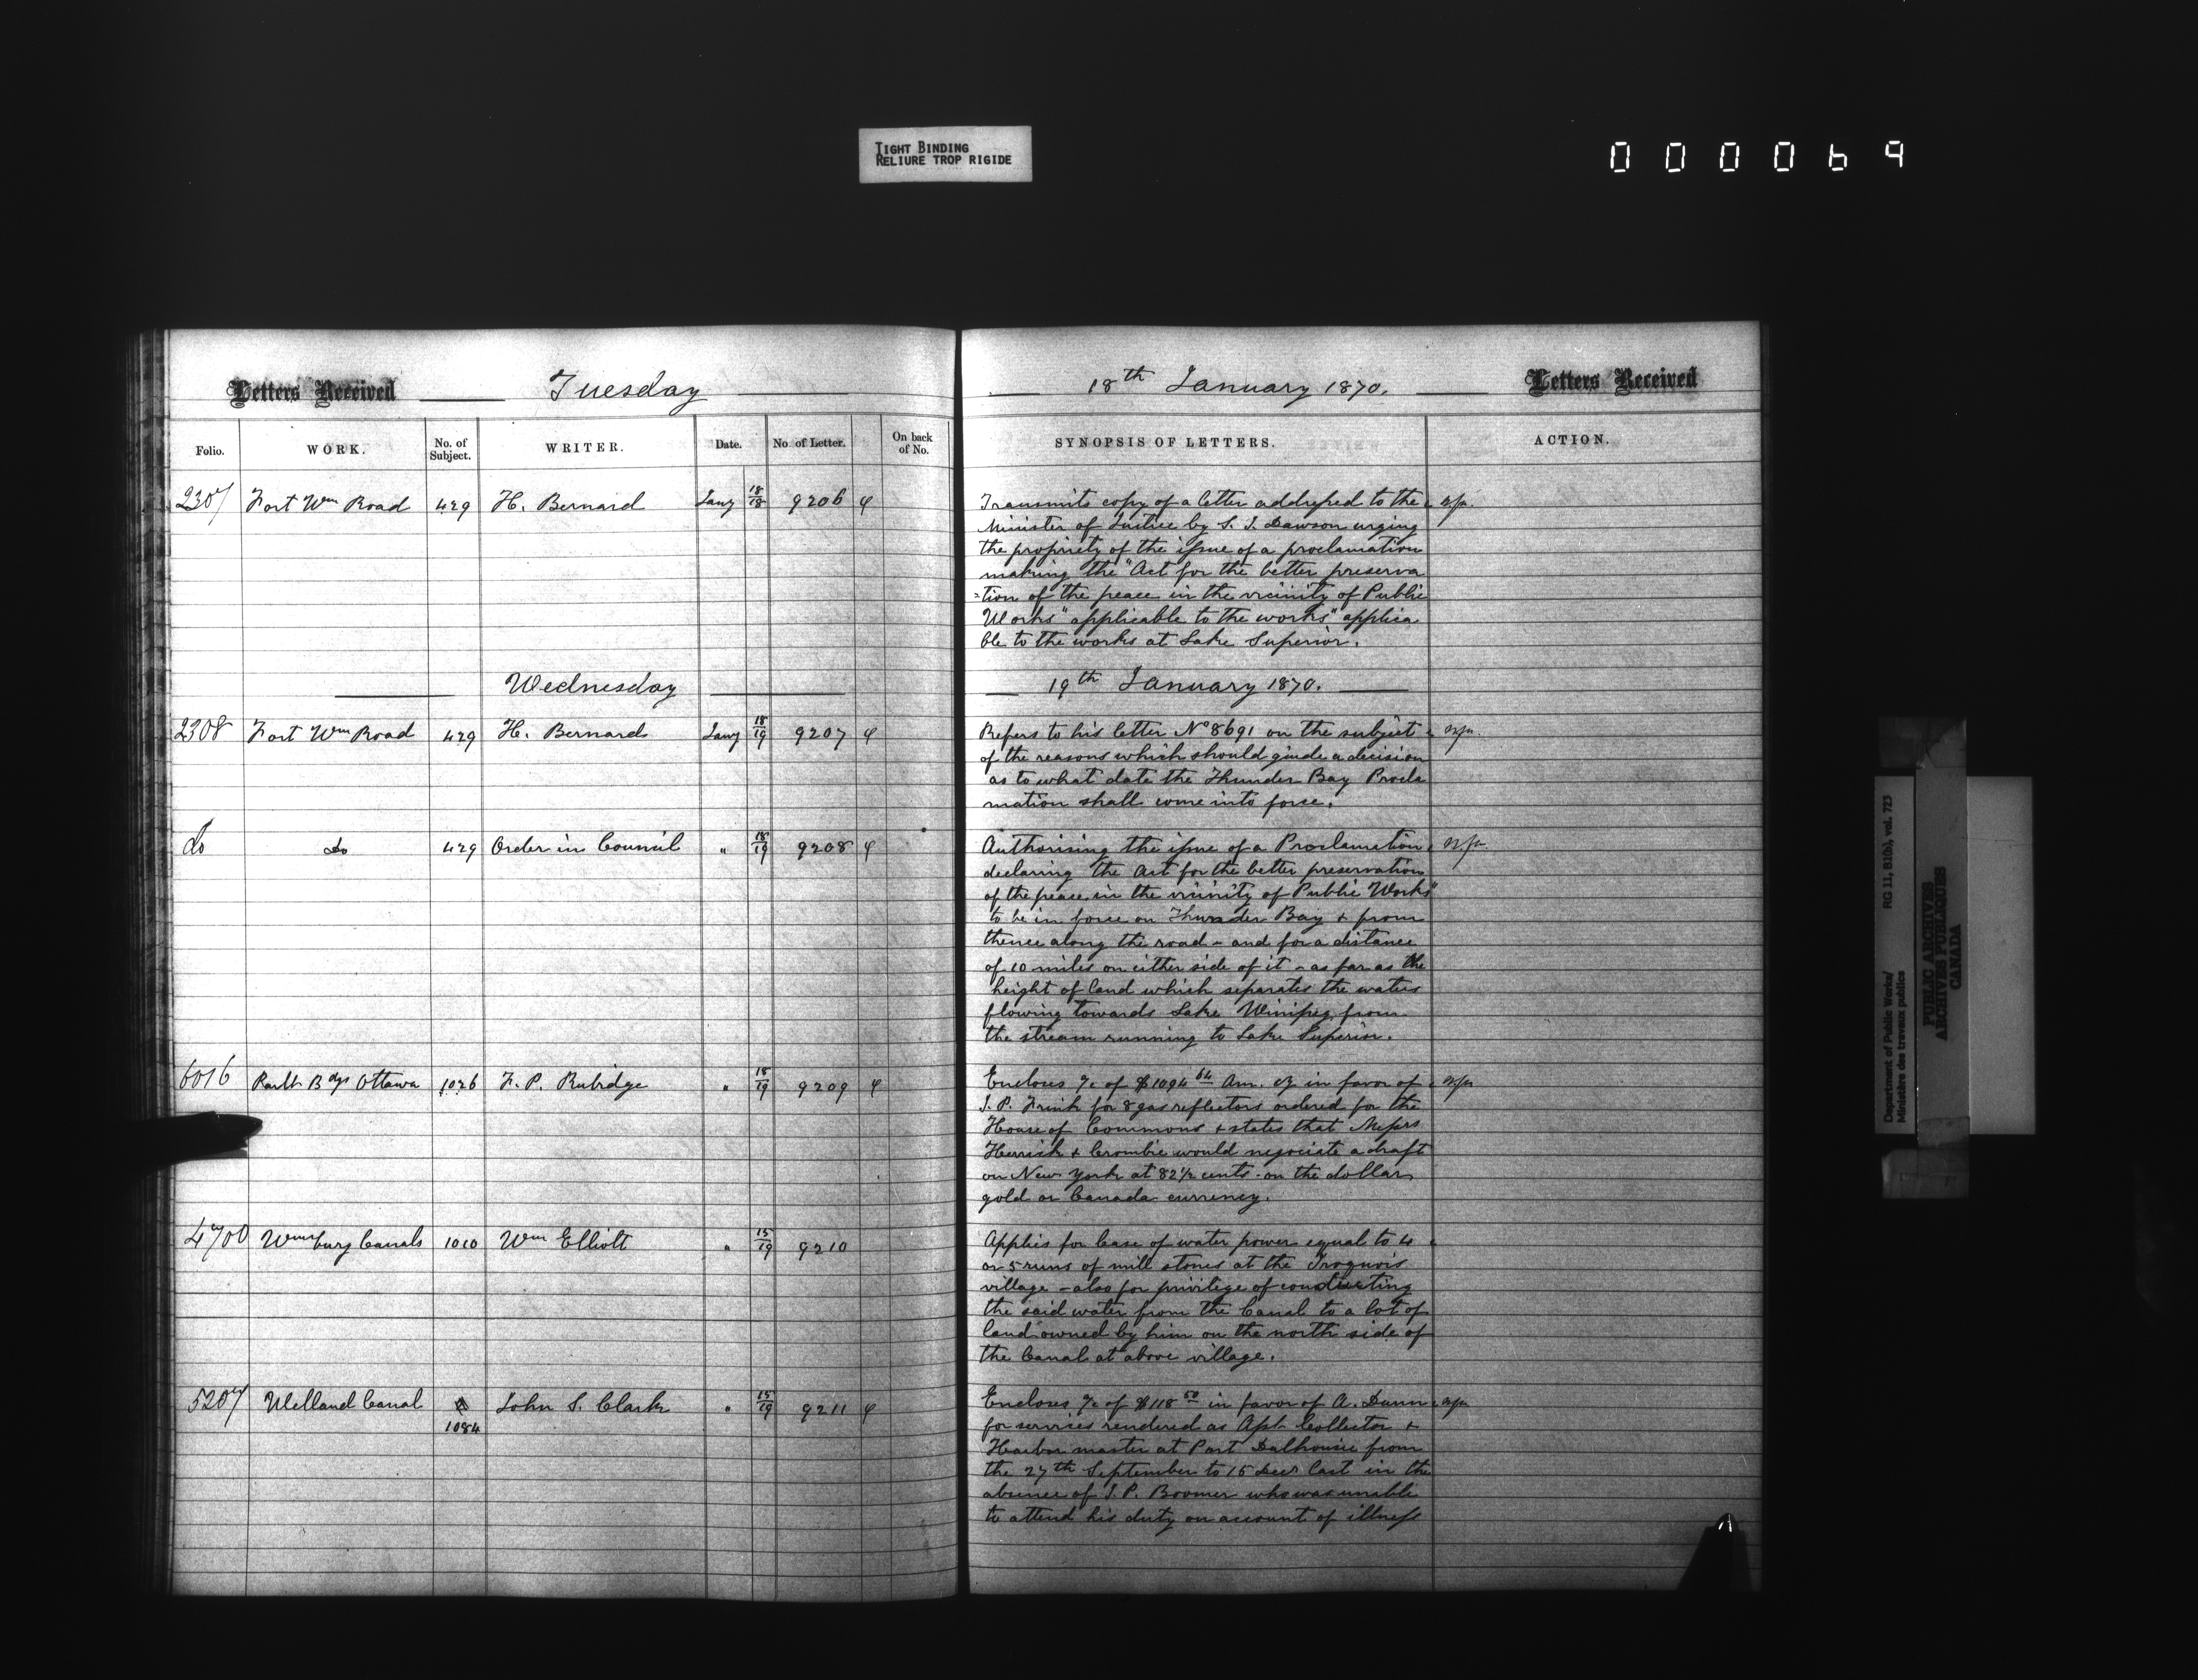 TIGHT BINDING
RELIURE TROP RIGIDE
000069
Letters Received Tuesday
Folio. WORK. No. of Subject. WRITER. Date. No. of Letter. On back of No.
2307 Fort Wm Road 429 H. Bernard Jany 18/18 9206
Wednesday
2308 Fort Wm Road 429 H. Bernard Jany 18/19 9207
do do 429 Order in Council " 18/19 9208
6016 Parlt Bdgs Ottawa 1026 F. P. Rubidge " 18/19 9209
4700 Wmsburg Canals 1010 Wm Elliott " 15/19 9210
5207 Welland Canal 1084 John S. Clark " 15/19 9211
18th January 1870. Letters Received
SYNOPSIS OF LETTERS. ACTION.
Transmits copy of a letter addressed to the
Minister of Justice by S. J. Dawson urging
the propriety of the issue of a proclamation
making the "Act for the better preserva
=tion of the peace in the vicinity of Public
Works" applicable to the works" applica
ble to the works at Lake Superior.
19th January 1870.
Refers to his letter No 8691 on the subject
of the reasons which should guide a decision
as to what date the Thunder Bay Procla
mation shall come into force.
Authorising the issue of a Proclamation
declaring the Act for the better preservation
of the peace in the vicinity of Public Works"
to be in force on Thunder Bay & from
thence along the road - and for a distance
of 10 miles on either side of it - as far as the
height of land which separates the waters
flowing towards Lake Winipeg from
the stream running to Lake Superior.
Encloses a/c of $1094 64 Am. Cy in favor of
I. P. Frink for 8 gas reflectors ordered for the
House of Commons & states that Messrs
Herrick & Crombie would negociate a draft
on New York at 82 1/2 cents on the dollar
gold or Canada currency.
Applies for lease of water power equal to 4
or 5 runs of mill stones at the Iroquois
village - also for privilege of conducting
the said water from the Canal to a lot of
land owned by him on the north side of
the Canal at above village.
Encloses a/c of $118 50 in favor of A. Dunn
for services rendered as Asst Collector &
Harbor master at Port Dalhousie from
the 27th September to 15 Decr last in the
absence of J. P. Boomer who was unable
to attend his duty on account of illness
Department of Public Works/ RG 11, B1(b), vol. 723
Ministère des travaux publics
PUBLIC ARCHIVES
ARCHIVES PUBLIQUES
CANADA